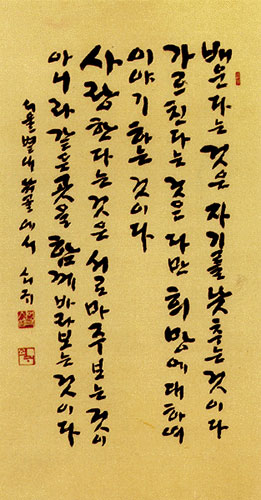 배운다는 것은 자기를 낮추는 것이다
가르친다는 것은 다만 희망에 대하여
이야기하는 것이다
사랑한다는 것은 서로 마주보는 것이
아니라 같은 곳을 함께 바라보는 것이다